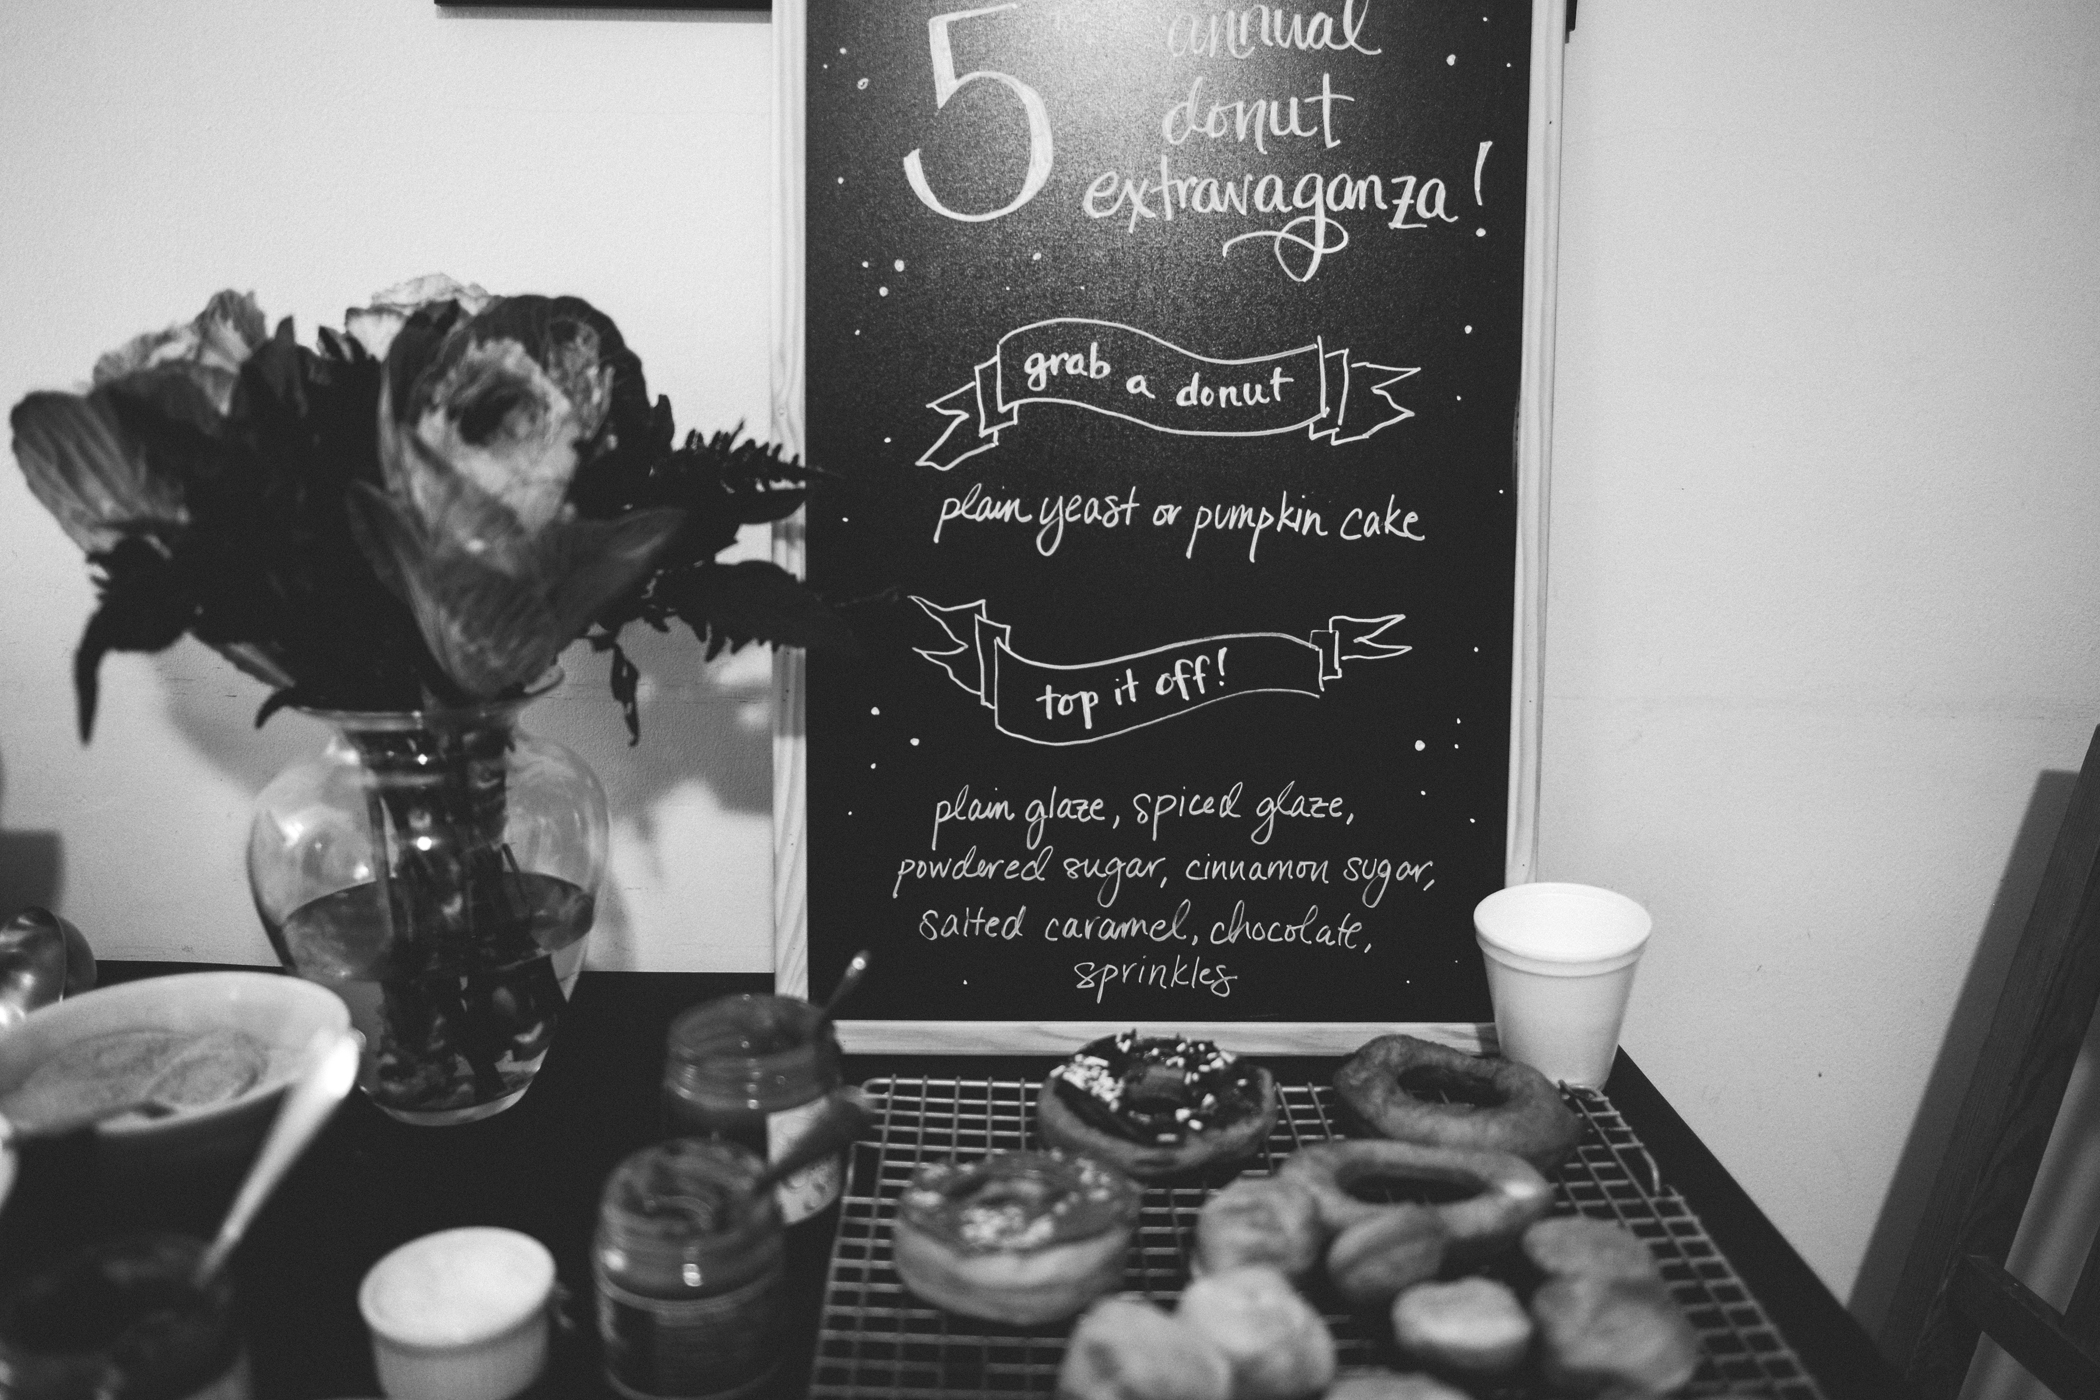 5 annual
donut
extravaganza!
grab a donut
plain yeast or pumpkin cake
top it off!
plain glaze, spiced glaze,
powdered sugar, cinnamon sugar,
salted caramel, chocolate,
sprinkles